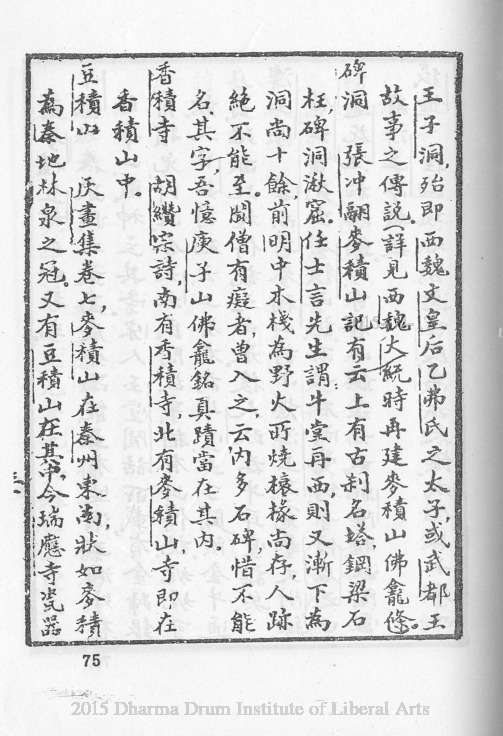 王子洞,殆即西魏文皇后乙弗氏之太子,或武都王
故事之傳說。(詳見西魏大統時再建麥積山佛龕條。
碑洞　張冲翮麥積山記有云上有古刹石塔,鋼梁石
柱,碑洞湫窟。任士言先生謂:牛堂再西,則又漸下為
洞尚十餘,前明中木棧為野火所燒,榱椽尚存,人跡
絕不能至。聞僧有癡者,曾入之,云內多石碑,惜不能
名其字,吾憶庾子山佛龕銘真蹟當在其內。
香積寺　胡纘宗詩,南有香積寺,北有麥積山,寺即在
香積山中。
豆積山　灰畫集卷七,麥積山在秦州東南,狀如麥積
為秦地林泉之冠。又有豆積山在其中,今瑞應寺瓷器
三六
75
2015 Dharma Drum Institute of Liberal Arts